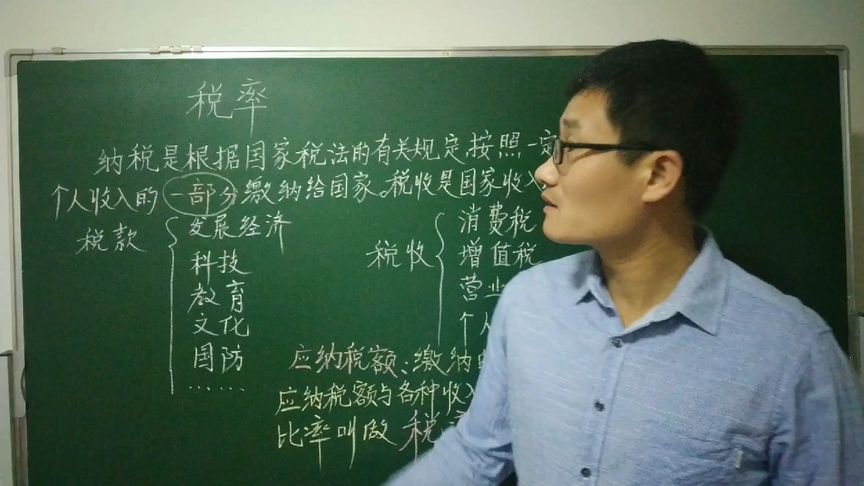 税率
纳税是根据国家税法的有关规定按照一定
个人收入的一部分缴纳给国家。税收是国家收入
税款
发展经济
科技
教育
文化
国防
……
税收
消费税
增值税
营业
个人
应纳税额：缴纳的
应纳税额与各种收入
比率叫做 税率